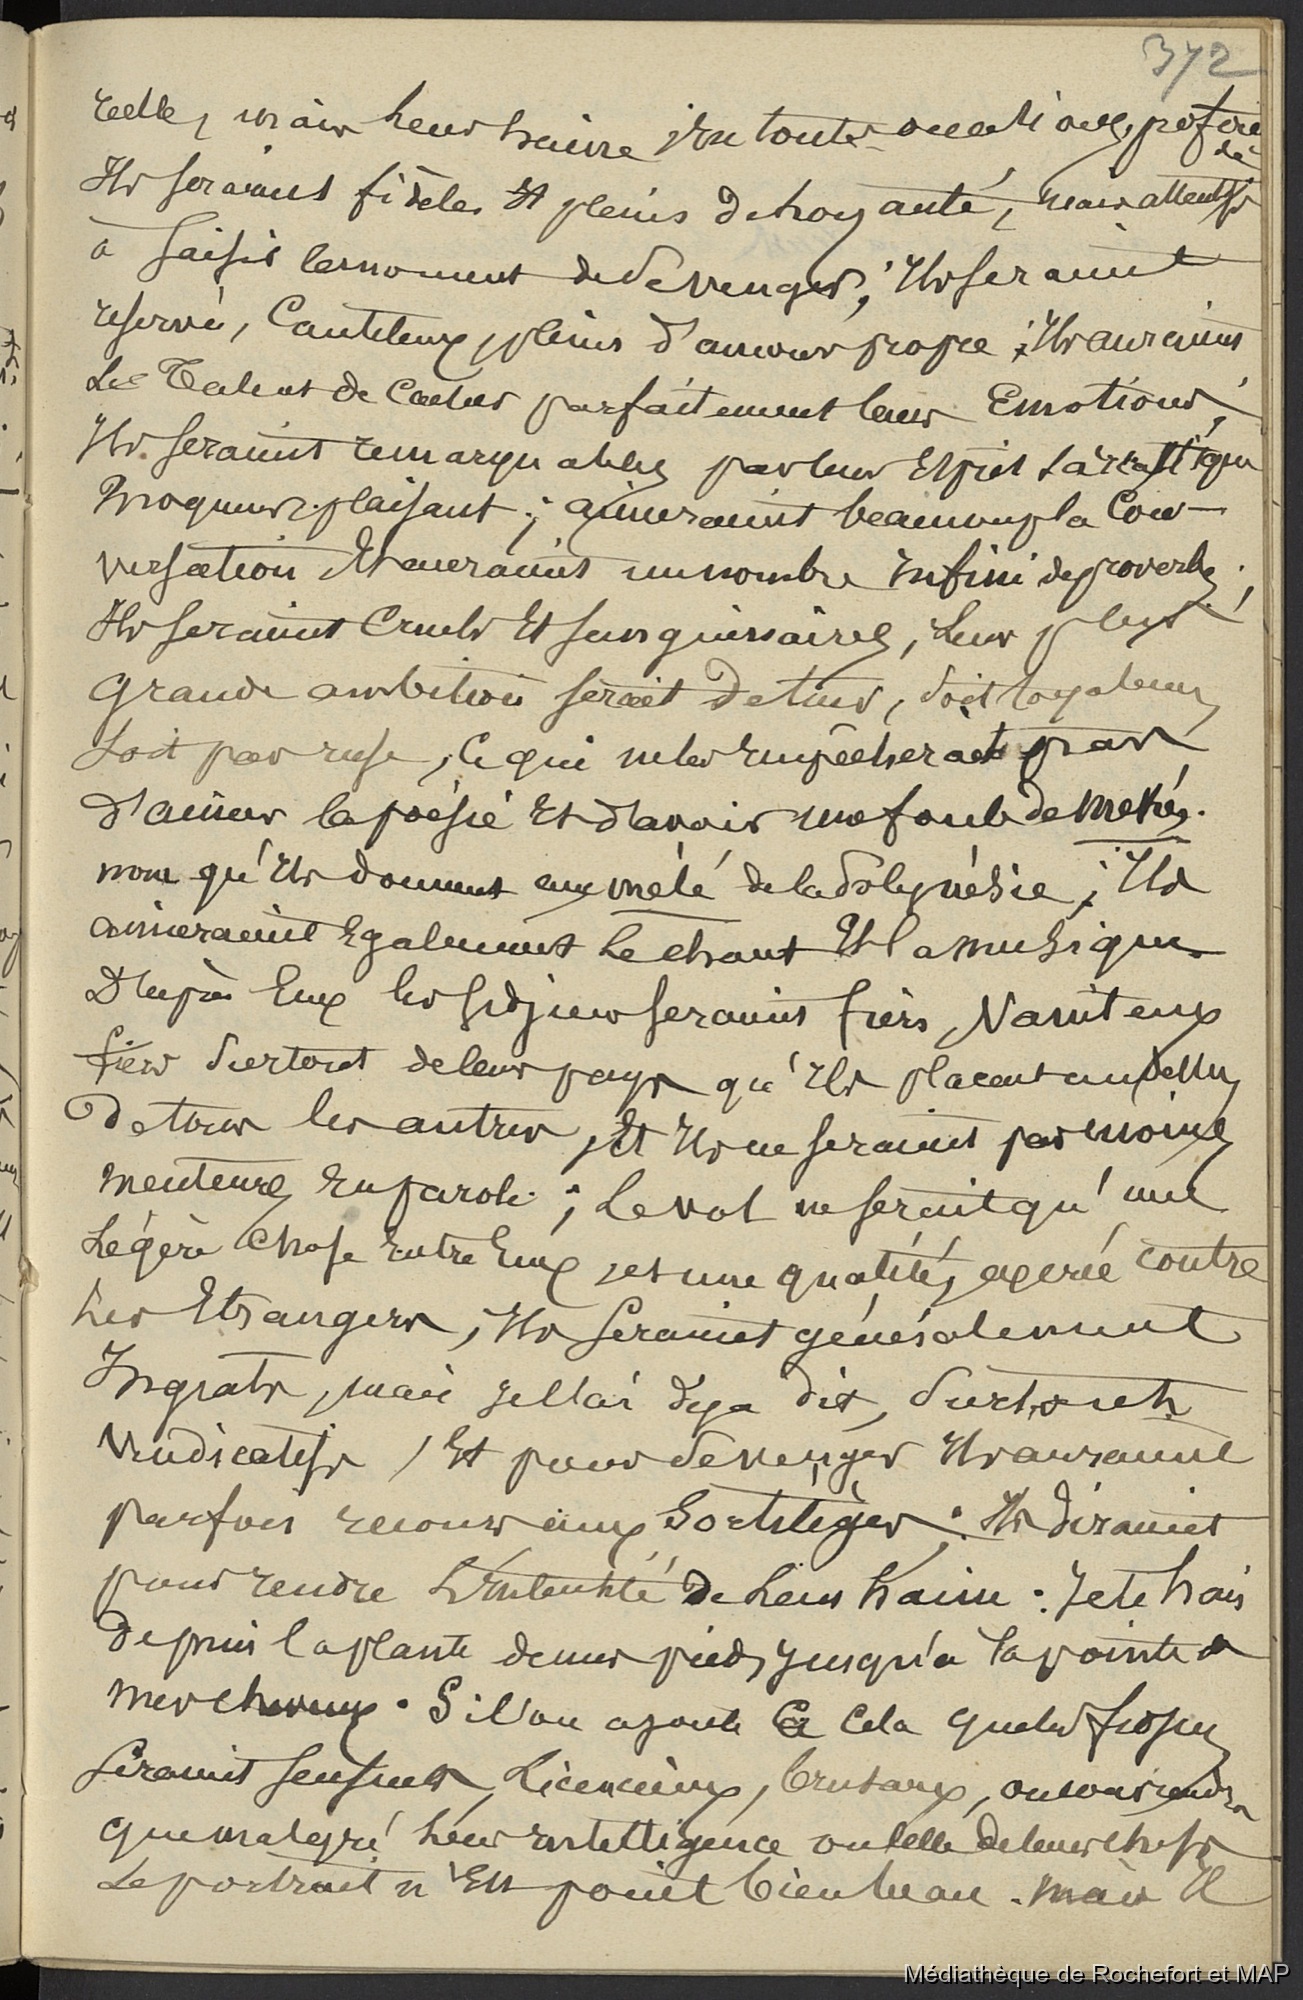 372
reelle, mais leur haine en toutes occasions, profonde
Ils seraient fidèles Et pleins de loyauté, mais attentifs
à saisir les moment de se venger ; Ils seraient
reservés, Cauteleux, pleins d'amour propre ; Ils auraient
Le Talent de Cacher parfaitement leurs Emotions ;
Ils seraient remarquables par leur Esprit sarcastique
Moqueur, plaisant ; aimeraient beaucoup la Con-
versation Et auraient un nombre infini de proverbes ;
Ils seraient Cruels Et sanguinaires, leur plus
grande ambition serait de tuer, soit loyalement
soit par ruse, Ce qui ne les Empêcherait pas
d'aimer la poésie Et d'avoir une foule de mékés.
nom qu'Ils donnent aux mélé de la Polynésie ; Ils
aimeraient Egalement Le chant Et la musique.
D'après Eux les fidjiens seraient fiers, Vaniteux
fiers surtout de leur pays qu'Ils placent au dessus
De tous les autres, Et Ils ne seraient pas moins
menteurs En parole ; Le vol ne serait qu'une
Légère Chose Entre Eux, et une qualité, exercé contre
Les Etrangers, Ils seraient généralement
Ingrats, mais je l'ai deja dit, surtout
Vindicatifs, Et pour se venger Ils auraient
parfois recours aux sortilèges ; Ils diraient
pour rendre L'Intensité de Leur haine : Je te hais
Depuis la plante de mes pieds jusqu'a la pointe de
mes cheveux. Si l'on ajoute à Cela que les fidjiens
seraient sensuels, Licencieux, brutaux, on conviendra
que malgré Leur intelligence ou celle de leurs chefs
Le portrait n'Est point bien beau. Mais Il
Médiathèque de Rochefort et MAP